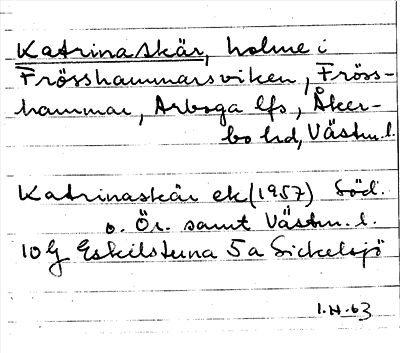 Katrinaskär, holme i
Frösshammarsviken, Fröss-
hammar, Arboga lfs, Åker-
bo hd, Västm. l.
Katrinaskär ek (1957) Söd.
o. Ör. samt Västm. l.
10 G Eskilstuna 5 a Sickelsjö